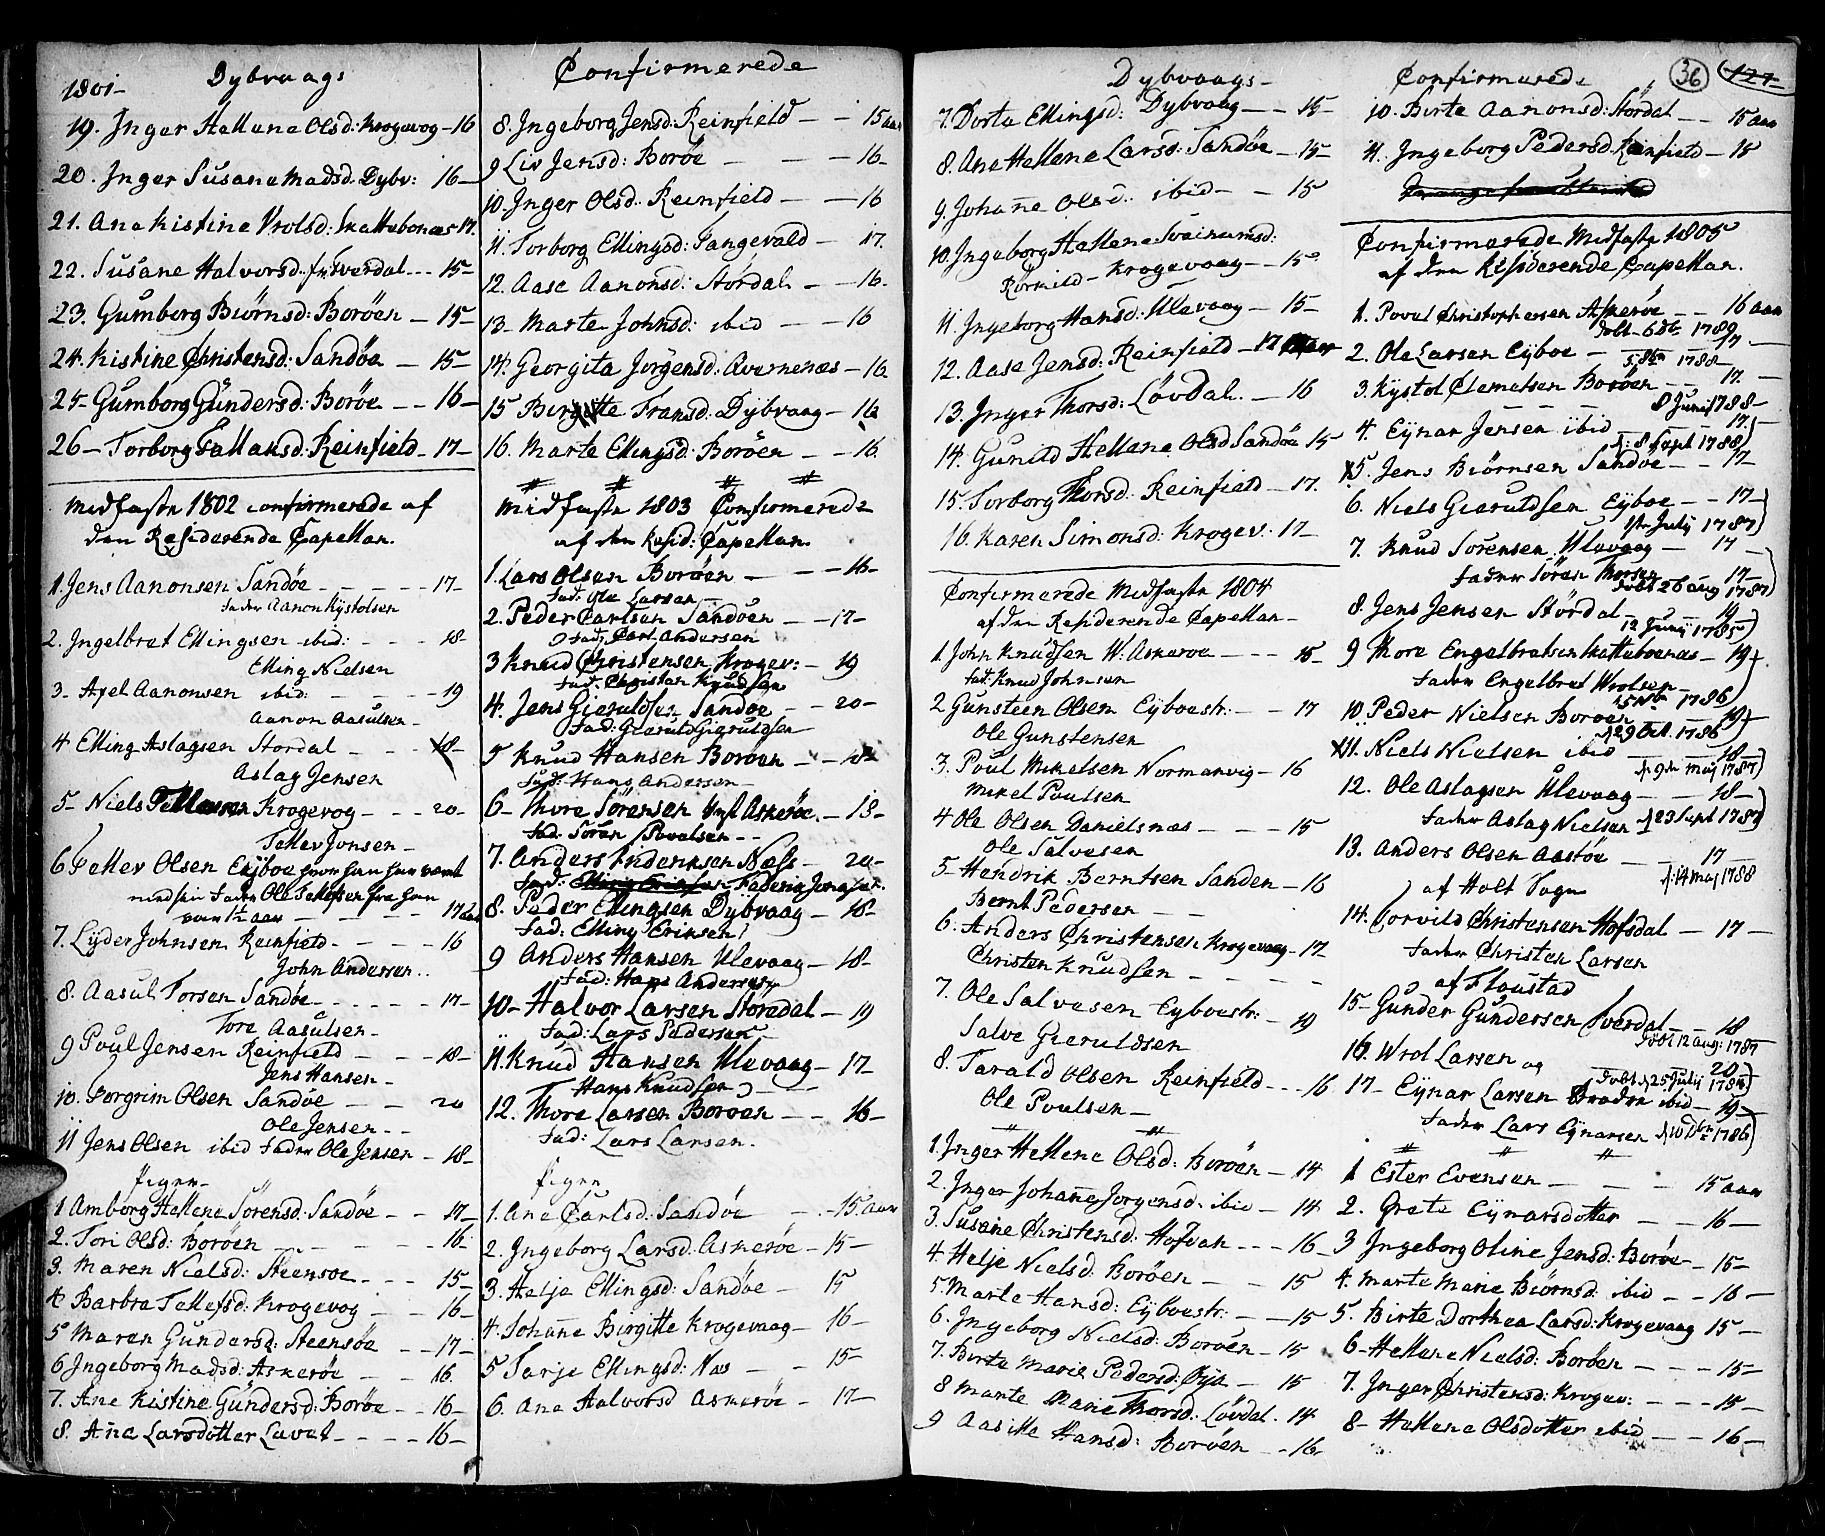 1801- Dybvaags
19. Inger Hellene Olsd: Krogevog - 16
20. Inger Susane Madsd: Dybv: 16-
21. Ane Kistine Vrolsd: Skattebonæs 17.
22. Susane Halvorsd: Tverdal - - 15-
23. Gumborg Biörnsd: Boröen - 15-
24. Kistine Christensd: Sandöe - 15-
25- Gumborg Gündersd: Boröe - - 16-
26- Torborg Tallaksd: Reinfield - 17-
Midfaste 1802 confirmerede af
den Residerende Capellan.
1. Jens Aanonsen Sandöe - - - 17-
fader Aanon Kystolsen
2. Ingelbret Ellingsen ibid: - - - 18-
Elling Nielsen
3- Axel Aanonsen ibid: - - - 19
Aanon Aasulsen -
4 Elling Aslagsen Stordal - - - 18-
Aslag Jensen
5- Niels Tellevsen Krogevog - - - 20-
Tellev Jonsen -
6 Tellev Olsen Eyboe hvor han har været
med sin fader Ole Tellefsen fra han
var 1½ aar - - - - 17 aar
7. Lyder Johnsen Reinfield - - - 16
John Andersen..
8. Aasul Torsen Sandöe - - - - 17-
Tore Aasulsen -
9 Poul Jensen Reinfield - - - 18-
Jens Hansen -
10. Torgrim Olsen Sandöe - - 20
Ole Jensen - -
11 Jens Olsen ibid fader Ole Jensen - 18-
Piger -
1 Amborg Hellene Sörensd: Sandöe - - 17-
2. Tori Olsd: Boröen - - - - 16-
3. Maren Nielsd: Steensoe - - - 15-
4 Barbra Tellefsd: Krogevog - - 16-
5 Maren Gundersd: Steensöe - - 17-
6 Ingeborg Madsd: Askeröe - - 16
7. Ane Kistine Gündersd: Boröe - - 16-
8. Ane Larsdotter Lavol - - - - 16-
Confirmerede
8. Ingeborg Jensd: Reinfield - - 15 aar
9 Liv Jensd: Boröe - - - 16-
10. Inger Olsd: Reinfield - - - 16
11 Torborg Ellingsd: Tangevald - 17.
12. Aase Aanonsd: Stördal - - 16.
13- Marte Johnsd: ibid - - 16
14. Georgita Jörgensd: Qvernenæs - 16.
15 Birgitte Fransd: Dybvaag - 16
16. Marte Ellingsd: Boröen - - 16
Midfaste 1803 Confirmerede
af den Resid: Capellan.
1. Lars Olsen Boröen - - - 16-
fad: Ole Larsen -
2. Peder Carlsen Sandöen - - 17-
fad: Carl Andersen
3 Knud Christensen Krogev: - 19
fad: Christen Knudsen
4. Jens Gieruldsen Sandöe - - 20-
fad: Gierulf Gieruldsen
5 Knud Hansen Boröen - - 18-
fad: Hans Andersen -
6- Thore Sörensen Vest Askeröe. - 18-
fad: Sören Povelsen - -
7. Anders Friderichsen Næss - 20-
fad: Frideric Jensen.
8. Peder Ellingsen Dybvaag - 18-
fad: Elling Eriksen
9 Anders Hansen Ulevaag - 18-
fad: Hans Andersen
10- Halvor Larsen Storedal - 19
fad: Lars Pedersen -
11. Knud Hansen Ulevaag - 17-
Hans Knudsen
12. Thore Larsen Boröen - - 16-
fad: Lars Larsen.
Piger
1. Ane Carlsd: Sandöe - - 15 aar
2. Ingeborg Larsd: Askeröe - 15-
3. Helje Ellingsd: Sandöe - 15
4. Johanne Birgitte Krogevaag - 16-
5 Tarje Ellingsd: Næs - - 15-
6. Ane Halvorsd Askeröe - 17-
Dybvaags -
7. Dorte Ellingsd: Dybvaag - - 15-
8. Ane Hellene Larsd: Sandöe - 15-
9. Johanne Olsd: ibid - - 15
10. Ingeborg Hellene Sveinumsd:
- Krogevaag - - 15
11. Ingeborg Hansd: Ulevaag - 15-
12. Aase Jensd: Reinfield - 17
13. Inger Thorsd: Lövdal. - 16
14. Gunild Hellene Olsd Sandöe 15
15. Torborg Thorsd: Reinfield - 17.
16. Karen Simonsd: Krogev: 17-
Confirmerede Midfaste 1804
af den Residerende Capellan -
1 John Knudsen W. Askeroe - - - 15-
fad: Knud Johnsen
2 Gunsteen Olsen Eyboestr: - - 17
Ole Gunstensen
3. Poul Mikelsen Normanvig - 16
Mikel Poulsen
4 Ole Olsen Danielsnæs - - - 15
Ole Salvesen
5- Hendrik Berntsen Sanden - 16
Bernt Pedersen - -
6. Anders Christensen Krogevaag - 17-
Christen Knudsen - - - -
7. Ole Salvesen Eyboestr: - 19
Salve Gieruldsen
8. Tarald Olsen Reinfield - - - 16
Ole Poulsen -
1. Inger Hellene Olsd: Boröen - 14
2. Inger Johanne Jorgensd: ibid - 14
3. Susane Christensd: Hofdah - - - 16-
4. Helje Nielsd: Boröen - - 15
5. Marte Hansd: Eyboestr: - - 15
6. Ingeborg Nielsd: Boröen - 15
7. Birte Marie Pedersd: - 15
8 Marte Marie Thorsd: Lövdal. 14
9 Aasille Hansd: Boröen - - 16-
Confirmerede 36 127
10. Birte Aanonsd: Stördal - - 15 aar
11. Ingeborg Pedersd: Reinfield - 15
Confirmerede Midfaste 1805
af den Residerende Capellan.
1. Povel Christophersen Askeröe - - 16 aar
döbt - 6 1789
2. Ole Larsen Eyboe - 17 -
1788
3. Kystol Clemetsen Boröen - - 17. -
8 Junii 1788 -
4. Eynar Jensen ibid - 17.
d: 8 Sept 1788
5. Jens Biörnsen Sandöe - - 17-
6. Niels Gieruldsen Eyboe - - 17-
1ste July 1787
7. Knud Sörensen Ulevaag - 17 -
fader Sören Thorsen 17-
döbt 26 aug 1787
8. Jens Jensen Stördal - 19
12 Junij 1785
9 Thore Engelbretsen Skatteboenæs - 19
fader Engelbret Wrolsen
1786
10. Peder Nielsen Boröen - 19
d 29 Oct. 1786
11. Niels Nielsen ibid - 18
d. 9de Maj 1787
12. Ole Aslagsen Ulevaag - - 18-
fader Aslag Nielsen d 23 Sept 1787
13. Anders Olsen Aastöe - 17-
af Holt Sogn d. 14 Maj 1788
14. Torvild Christensen Hofsdal - 17-
fader Christen Larsen
af Flaustad
15- Gunder Gundersen Tverdal - - 18
döbt 12 aug: 1787
16. Wrol Larsen og 20-
döbt d 25 July 1784
17- Eynar Larsen ibid - 19-
fader Lars Eynarsen d 10 1786
1 Ester Evensen - - - 15 aar
2. Grete Eynarsdotter - - 16-
3 Ingeborg Oline Jensd: Boröe - 15-
4. Marte Marie Biörnsd: ibid - - 16-
5. Birte Dorthea Larsd: Krogevaag 15-
6- Hellene Nielsd: Boröen - - - 15-
7. Inger Christensd: Krogev: - - - 15-
8- Hellene Olsdotter ibid - - 16-